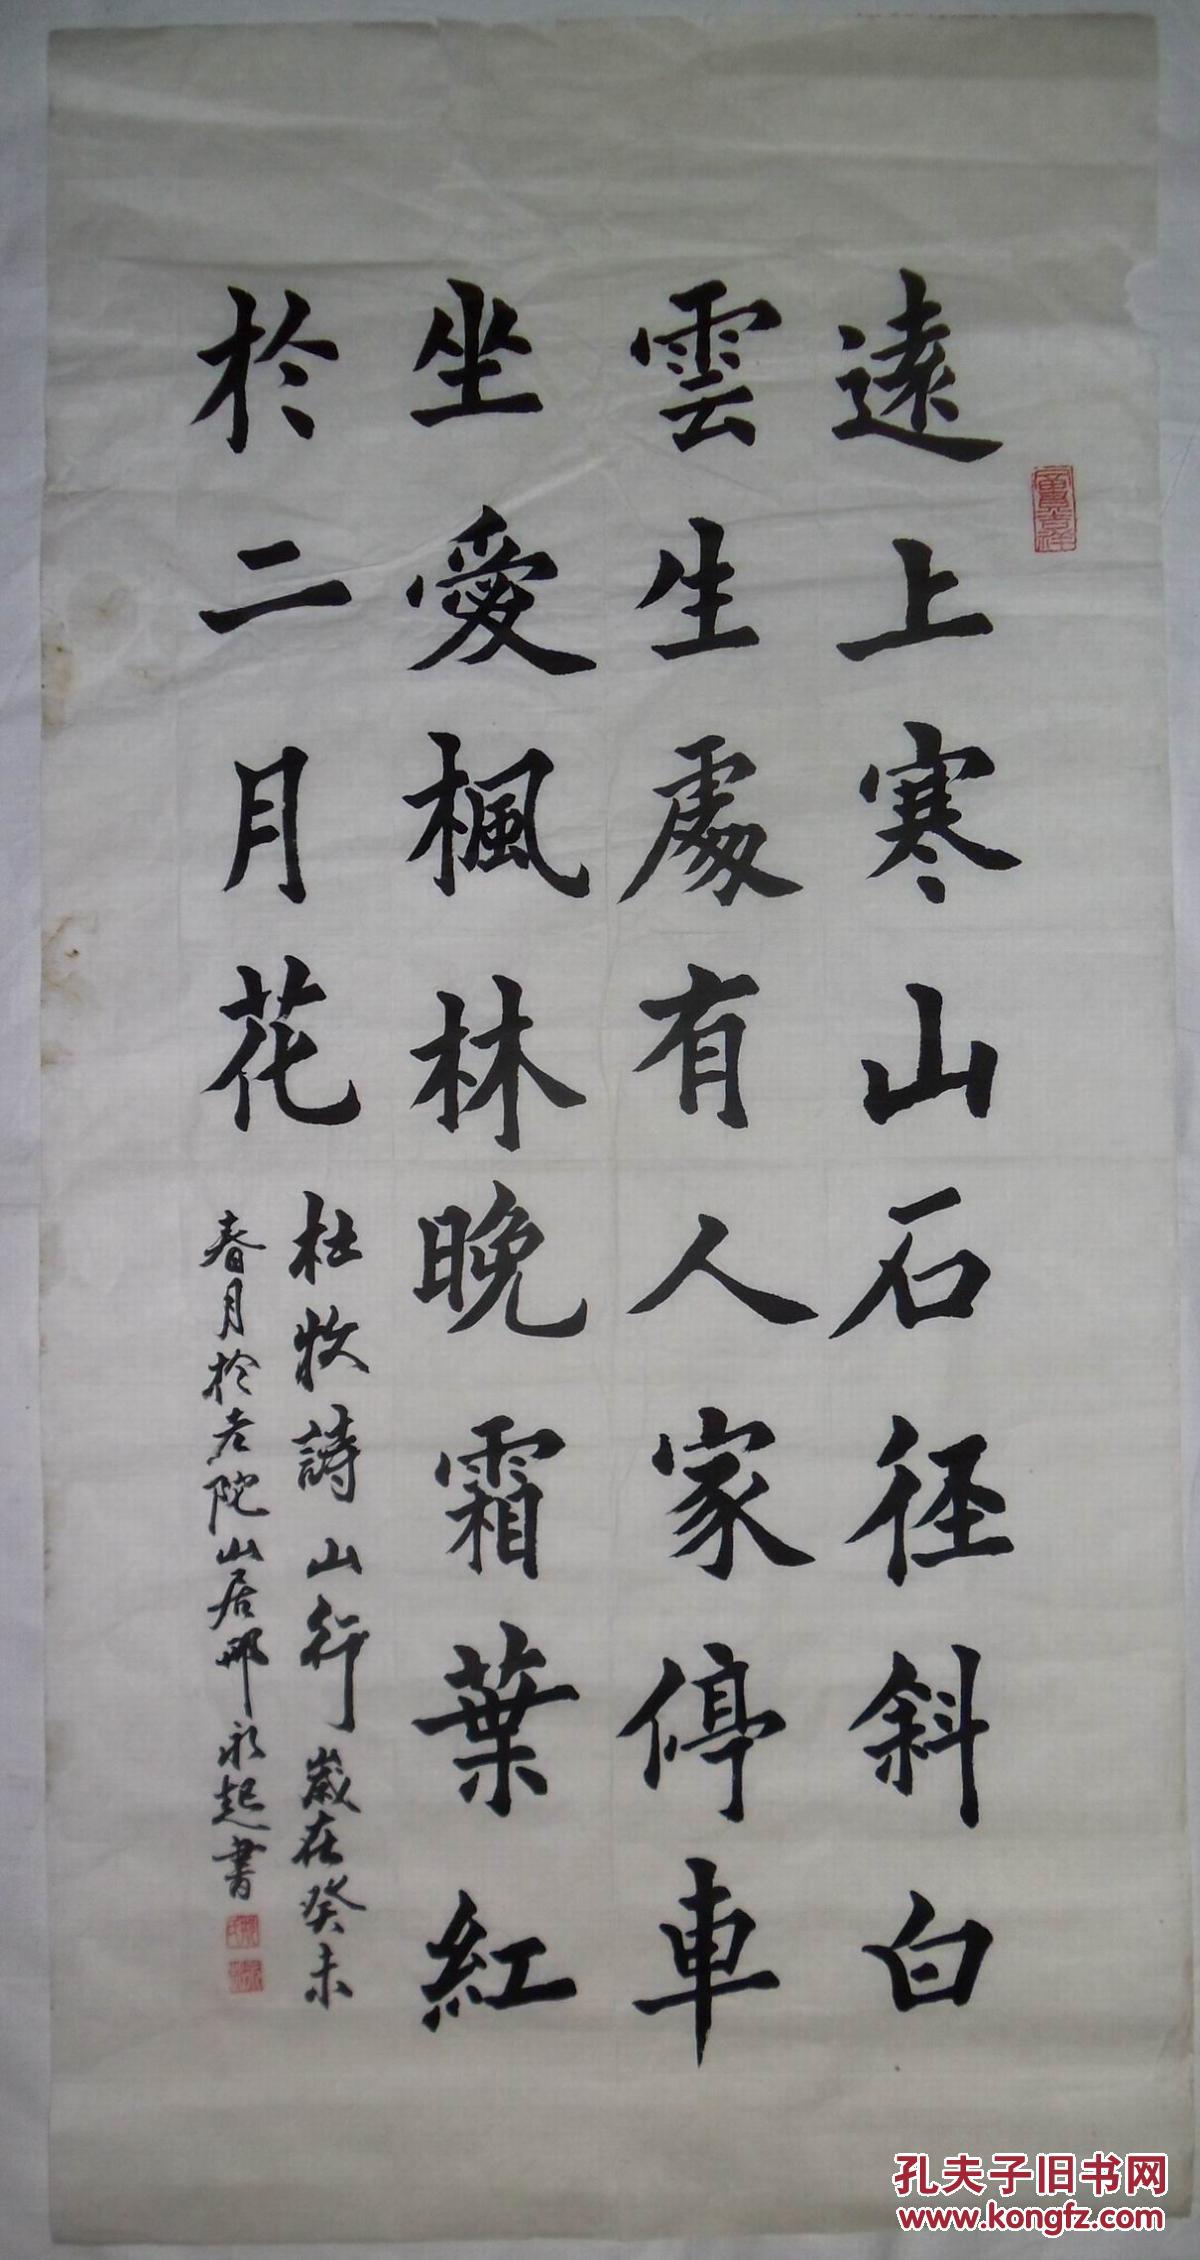 遠上寒山石径斜白
雲生處有人家停車
坐愛楓林晚霜葉紅
於二月花
杜牧詩山行歲在癸未
春月於老陀山居邢永起書
孔夫子旧书网
www.kongfz.com